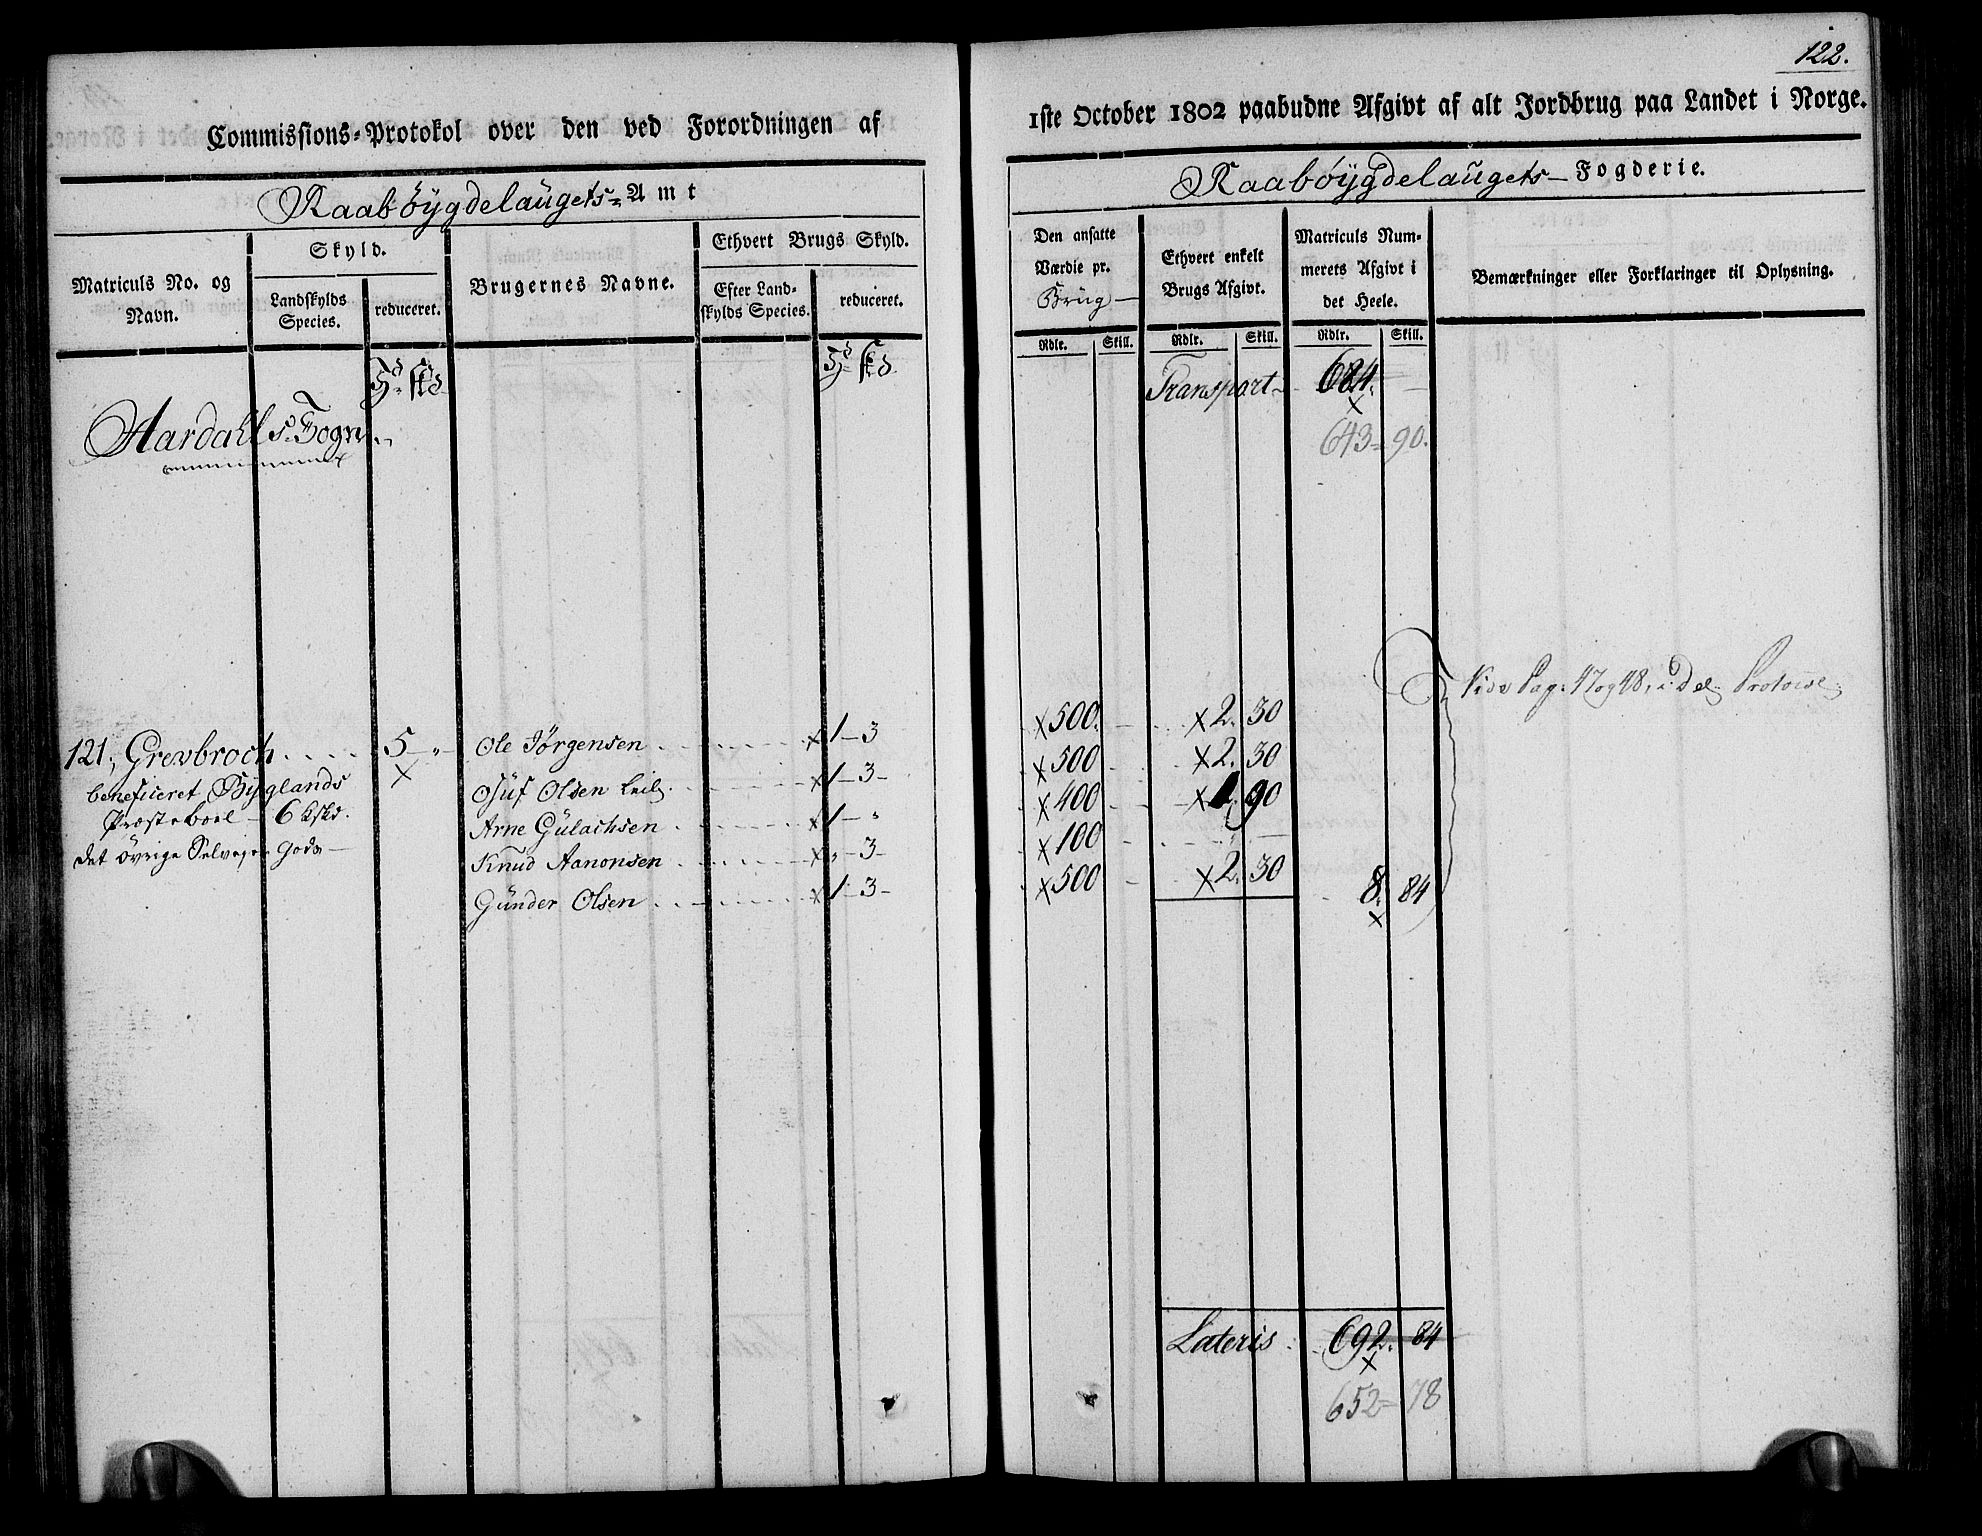 122.
Commissions-Protokol over den ved Forordningen af
1ste October 1802 paabudne Afgivt af alt Jordbrug paa Landet i Norge.
Raabøÿgdelaugets- Amt
Raabøÿgdelaugets- Fogderie.
Matriculs No. og Navn.
Skyld.
Landskylds Species.
reduceret.
Brugernes Navne.
Ethvert Brugs Skyld.
Efter Land-skylds Species.
reduceret.
Den ansatte Værdie pr. Brug
Ethvert enkelt Brugs Afgivt.
Matriculs Nummerets Afgivt i det Heele.
Bemærkninger eller Forklaringer til Oplysning.
Rdlr. Skill. Rdlr. Skill. Rdlr. Skill.
Transport 684. —
643= 90.
Aardahls Sogn
Vide Pag: 47 og 48, i Del. Protocol
121, Grevbroch 5 - " Ole Jørgensen 1 - 3 500. 2. 30
beneficeret Byglands Osüf Olsen Leil. 1 - 3 - 500 2. 30
Præsteboel - 6 kskd. Arne Gülachsen 1 - " 400 1. 90
det øvrige Selveier Gods - Knud Aanonsen " - 3 - 100 "
Günder Olsen 1 - 3 - 500 2. 30 8. 84
Lateris 692. 84
652= 78